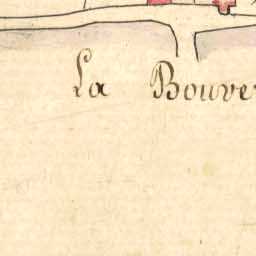 La Bouve